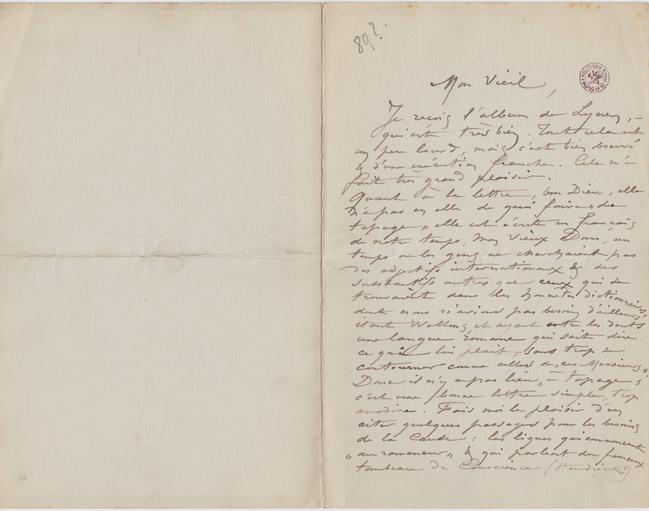 89?
Mon Vieil,
Je reçois l'album de Lynen, –
qui est très bien. Tout cela est
un peu lourd, mais c'est bien observé
& d'une exécution franche. Cela m'a
fait très grand plaisir.
Quant à la lettre, bon Dieu, elle
n'a pas en elle de quoi faire « de
tapage » elle est écrite en français
de notre temps, mon vieux Dom, un
temps où les gens ne cherchaient pas
des adjectifs internationaux & des
substantifs autres que ceux qui se
trouvaient dans les honnêtes dictionnaires,
dont nous n'avions pas besoin d'ailleurs,
étant Wallons, et ayant entre les dents
une langue romane qui sait dire
ce qui lui plait, sans trop se
contourner comme celles de « ces Messieurs ».
Donc il n'y a pas lieu « à tapage » ;
c'est une bonne lettre simple, trop
anodine. Fais moi le plaisir d'en
citer quelques passages pour les besoins
de la Cause : les lignes qui commencent
« au romancier » & qui parlent du fameux
tombeau de Conscience (Hendrick!)